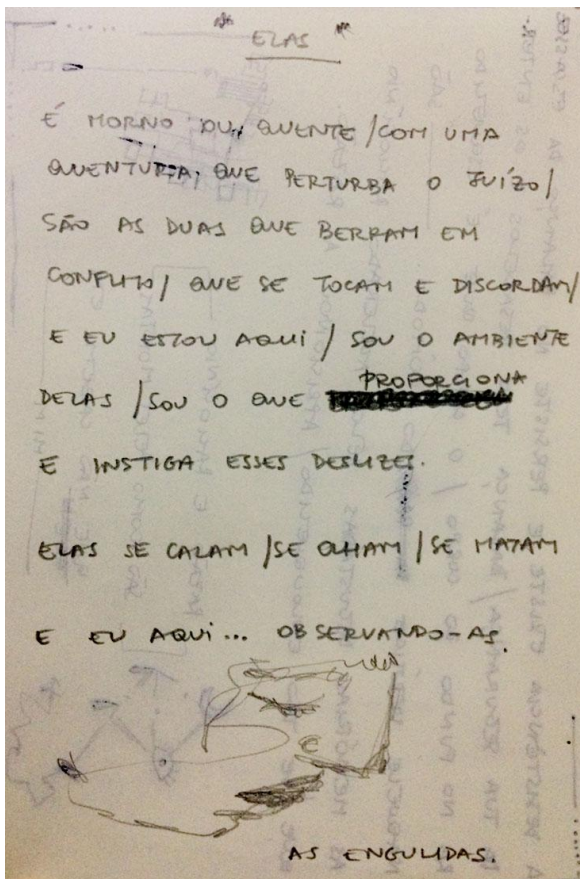 " ELAS "
É MORNO OU QUENTE / COM UMA
QUENTURA, QUE PERTURBA O JUÍZO /
SÃO AS DUAS QUE BERRAM EM
CONFLITO / QUE SE TOCAM E DISCORDAM /
E EU ESTOU AQUI / SOU O AMBIENTE
DELAS / SOU O QUE PROPORCIONA
E INSTIGA ESSES DESLIZES.
ELAS SE CALAM / SE OLHAM / SE MATAM
E EU AQUI... OBSERVANDO-AS.
AS ENGULIDAS.